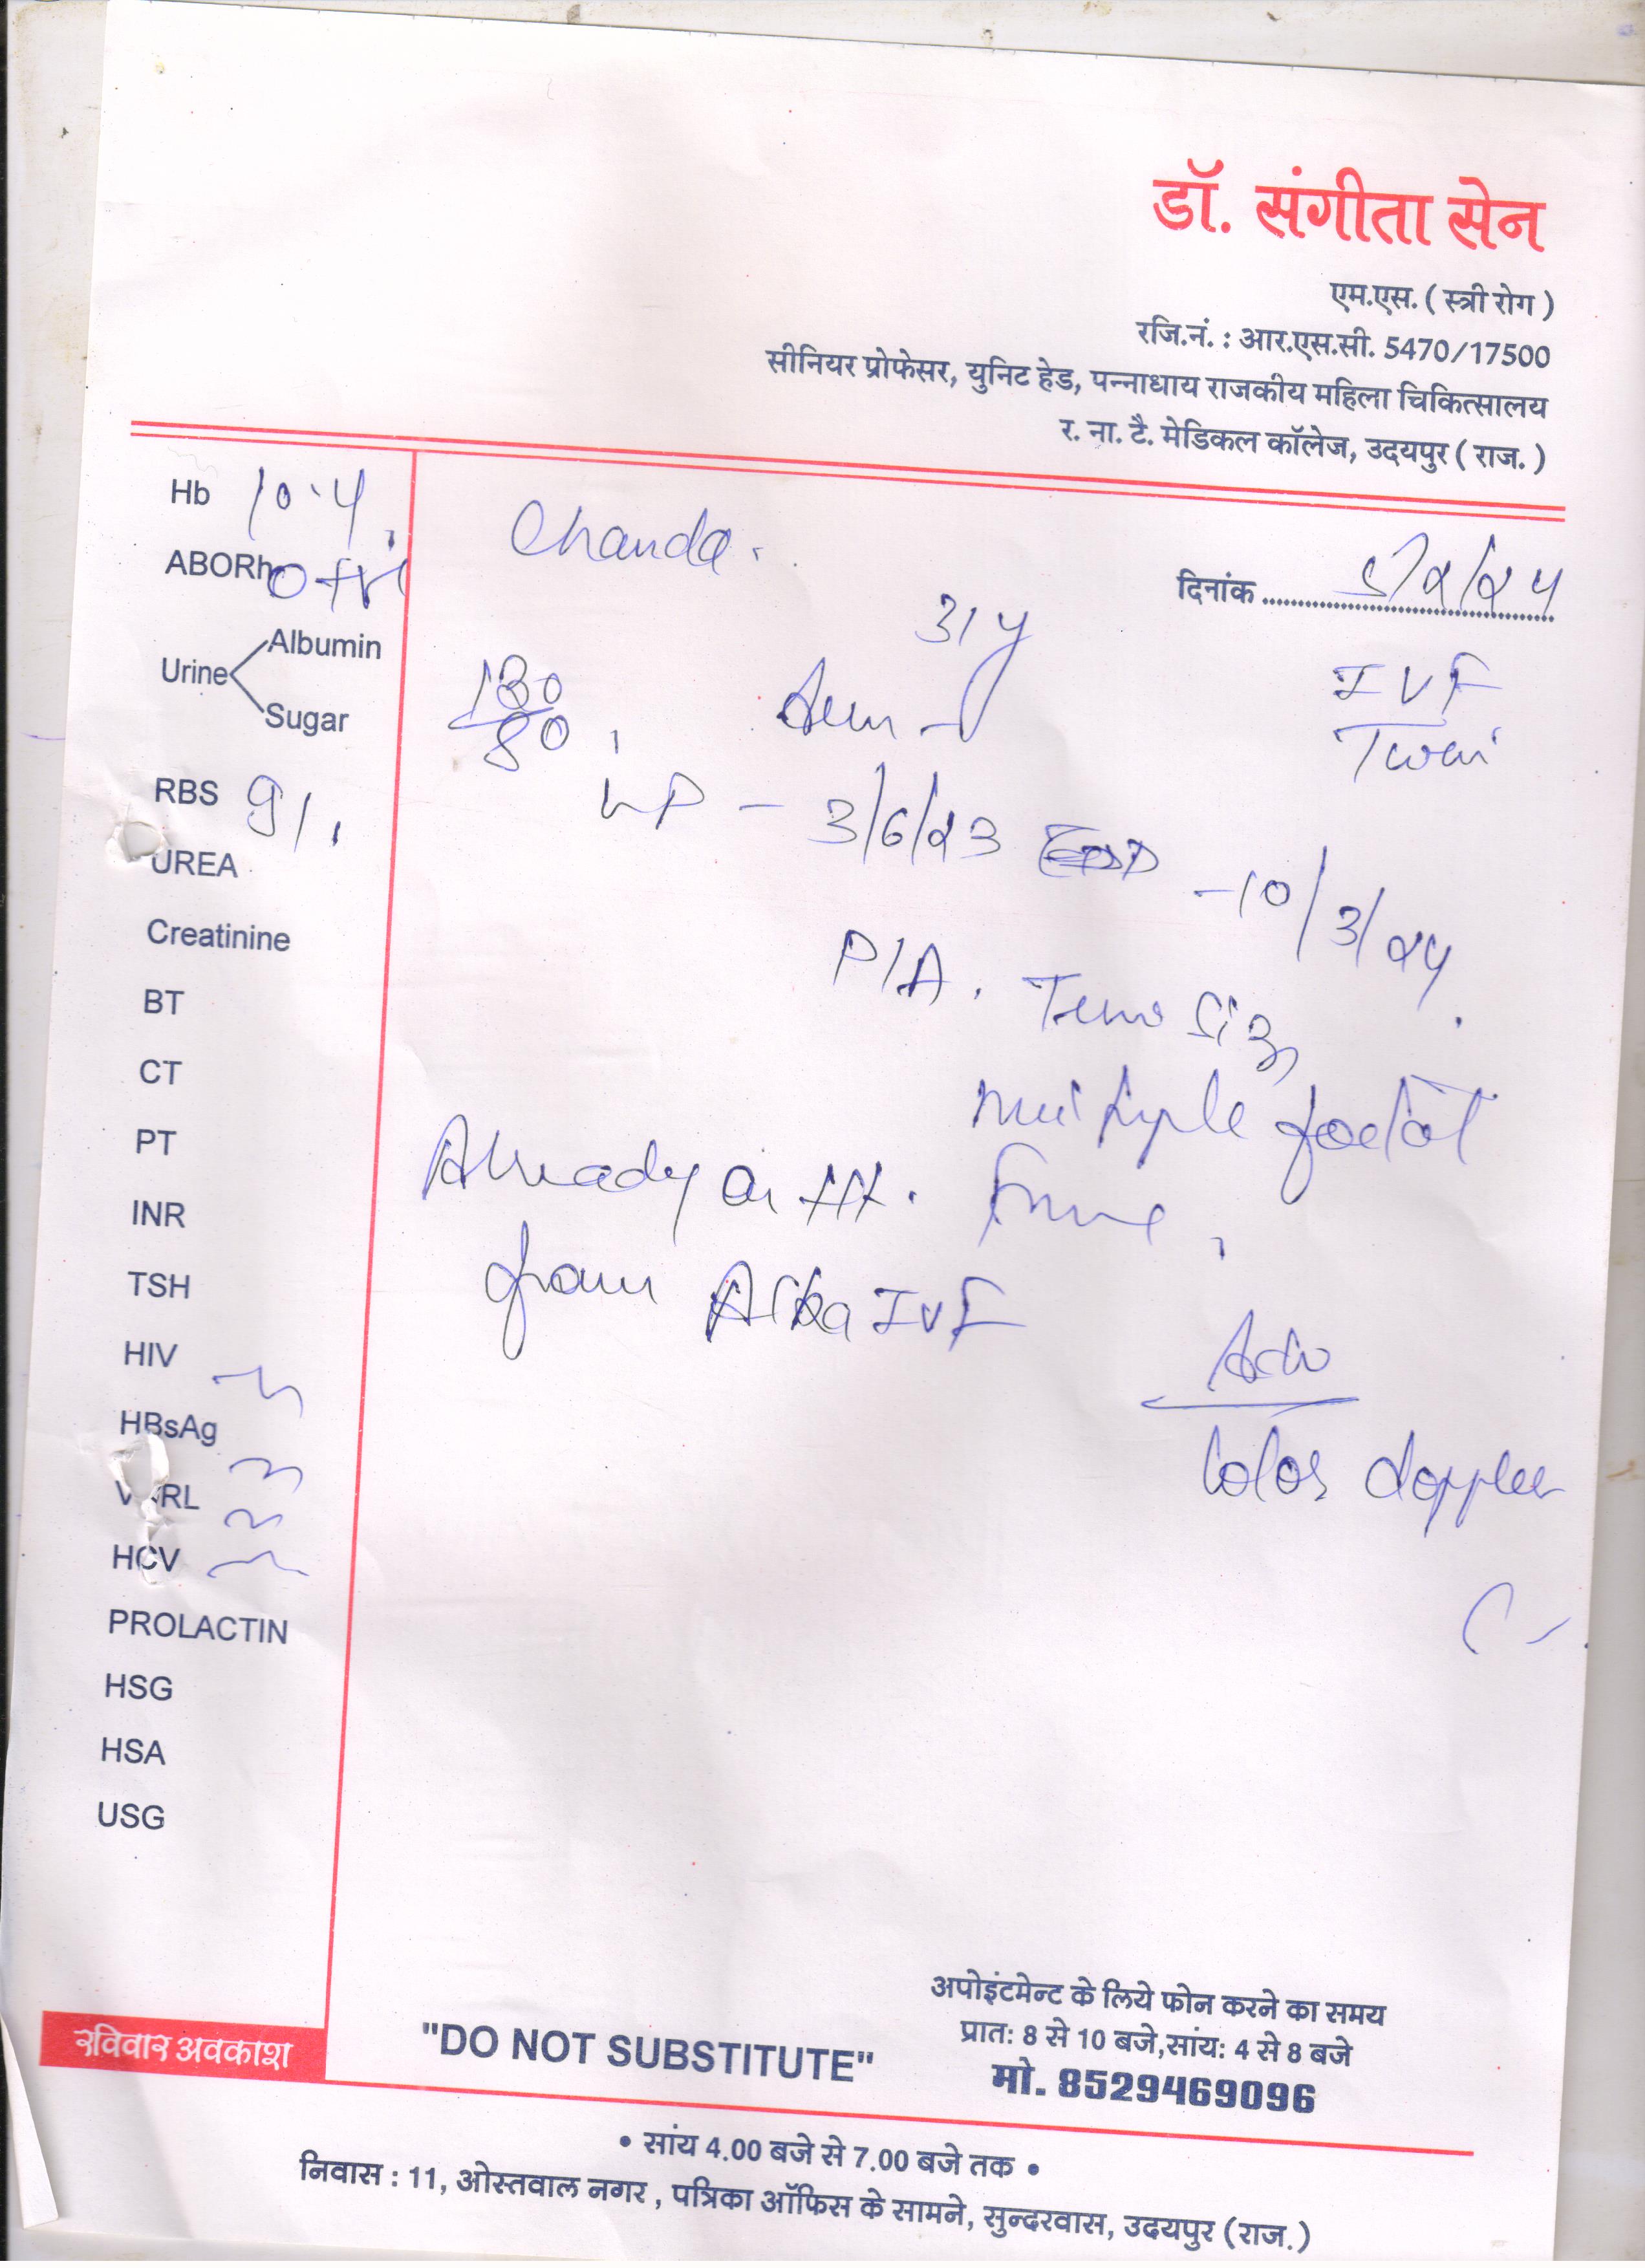 डॉ. संगीता सेन
एम.एस. ( स्त्री रोग )
रजि.नं. : आर.एस.सी. 5470/17500
सीनियर प्रोफेसर, युनिट हेड, पन्नाधाय राजकीय महिला चिकित्सालय
र. ना. टै. मेडिकल कॉलेज, उदयपुर ( राज. )
Hb 10.4
ABORh O +ve
Urine Albumin
Sugar
RBS 91
UREA
Creatinine
BT
CT
PT
INR
TSH
HIV
HBsAg
VDRL
HCV
PROLACTIN
HSG
HSA
USG
Chanda.
दिनांक 5/2/24
31y
130/80
IVF
Twin
LMP - 3/6/23 EDD - 10/3/24
P/A. Term Size
multiple foetal
Already on ttt.
from Arka IVF
Adv
Color doppler
रविवार अवकाश
"DO NOT SUBSTITUTE"
अपोइंटमेन्ट के लिये फोन करने का समय
प्रातः 8 से 10 बजे,सांयः 4 से 8 बजे
मो. 8529469096
• सांय 4.00 बजे से 7.00 बजे तक •
निवास : 11, ओस्तवाल नगर , पत्रिका ऑफिस के सामने, सुन्दरवास, उदयपुर (राज.)